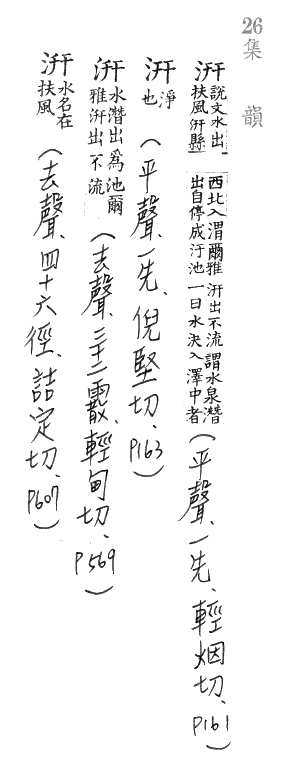 26集韻
汧說文水出扶風汧縣西北入渭爾雅汧出不流謂水泉潛出自停成汙池一曰水決入澤中者(平聲、一先、輕烟切、P161)
汧淨也(平聲、一先、倪堅切、P163)
汧水潛出為池爾雅汧出不流(去聲、三十二霰、輕甸切、P569)
汧水名在扶風(去聲、四十六徑、詰定切、P607)